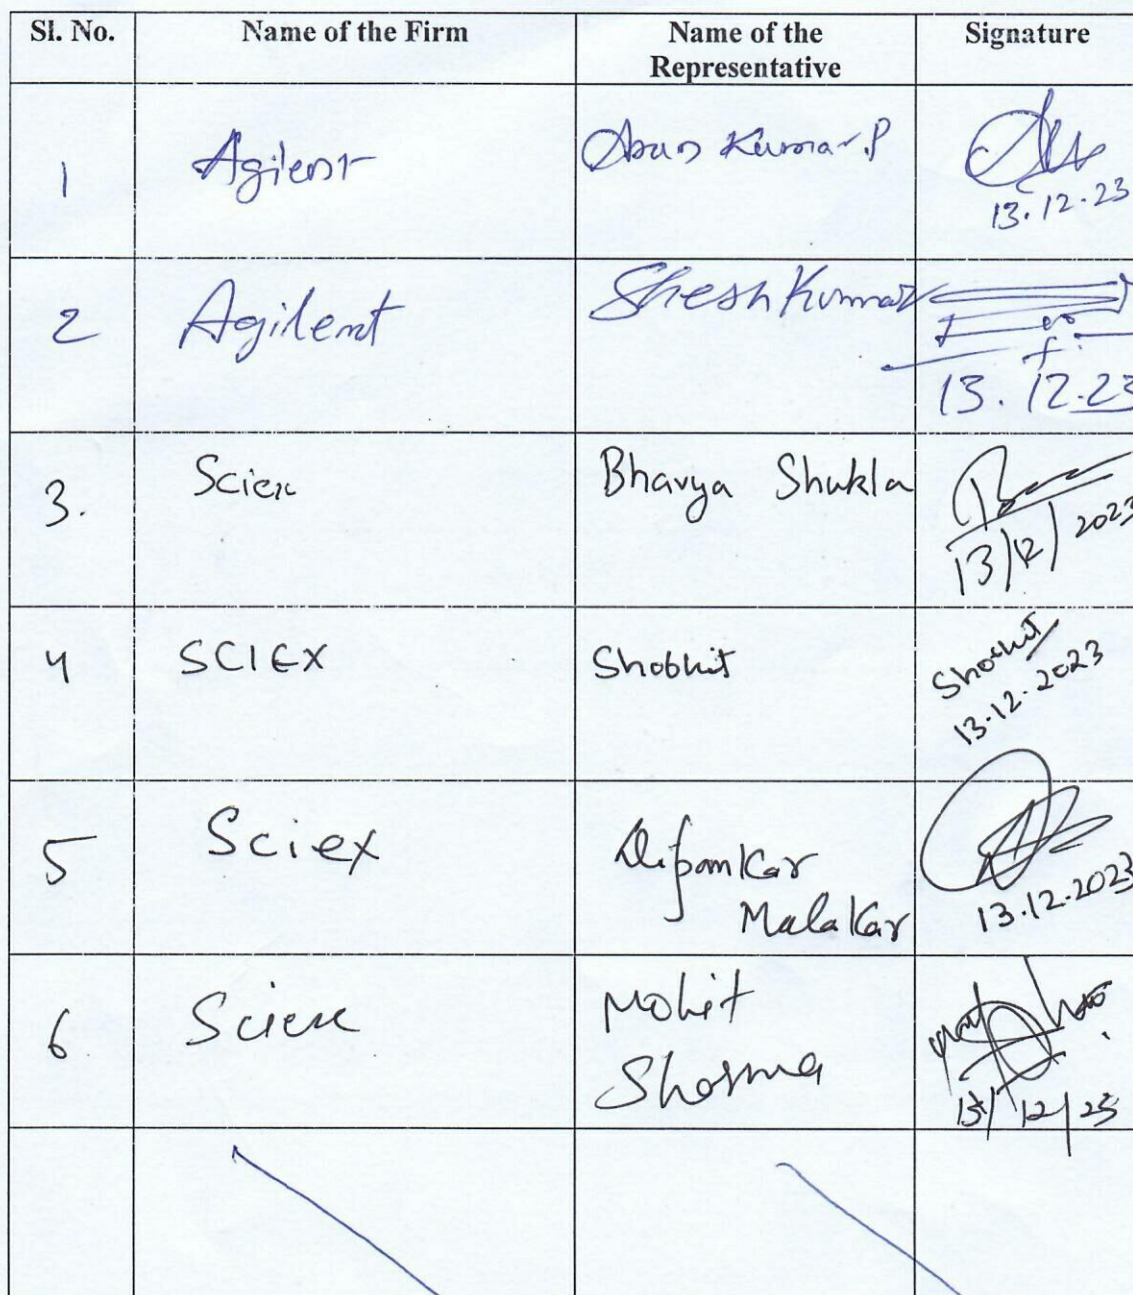 Sl. No. Name of the Firm Name of the Signature
Representative
1 Agilent Arun Kumar.P
13.12.23
2 Agilent Shesh Kumar
13.12.23
3. Sciex Bhavya Shukla
13/12/2023
4 SCIEX Shobhit Shobhit
13.12.2023
5 Sciex Dipankar
Malakar 13.12.2023
6 Sciex Mohit
Sharma
12/23